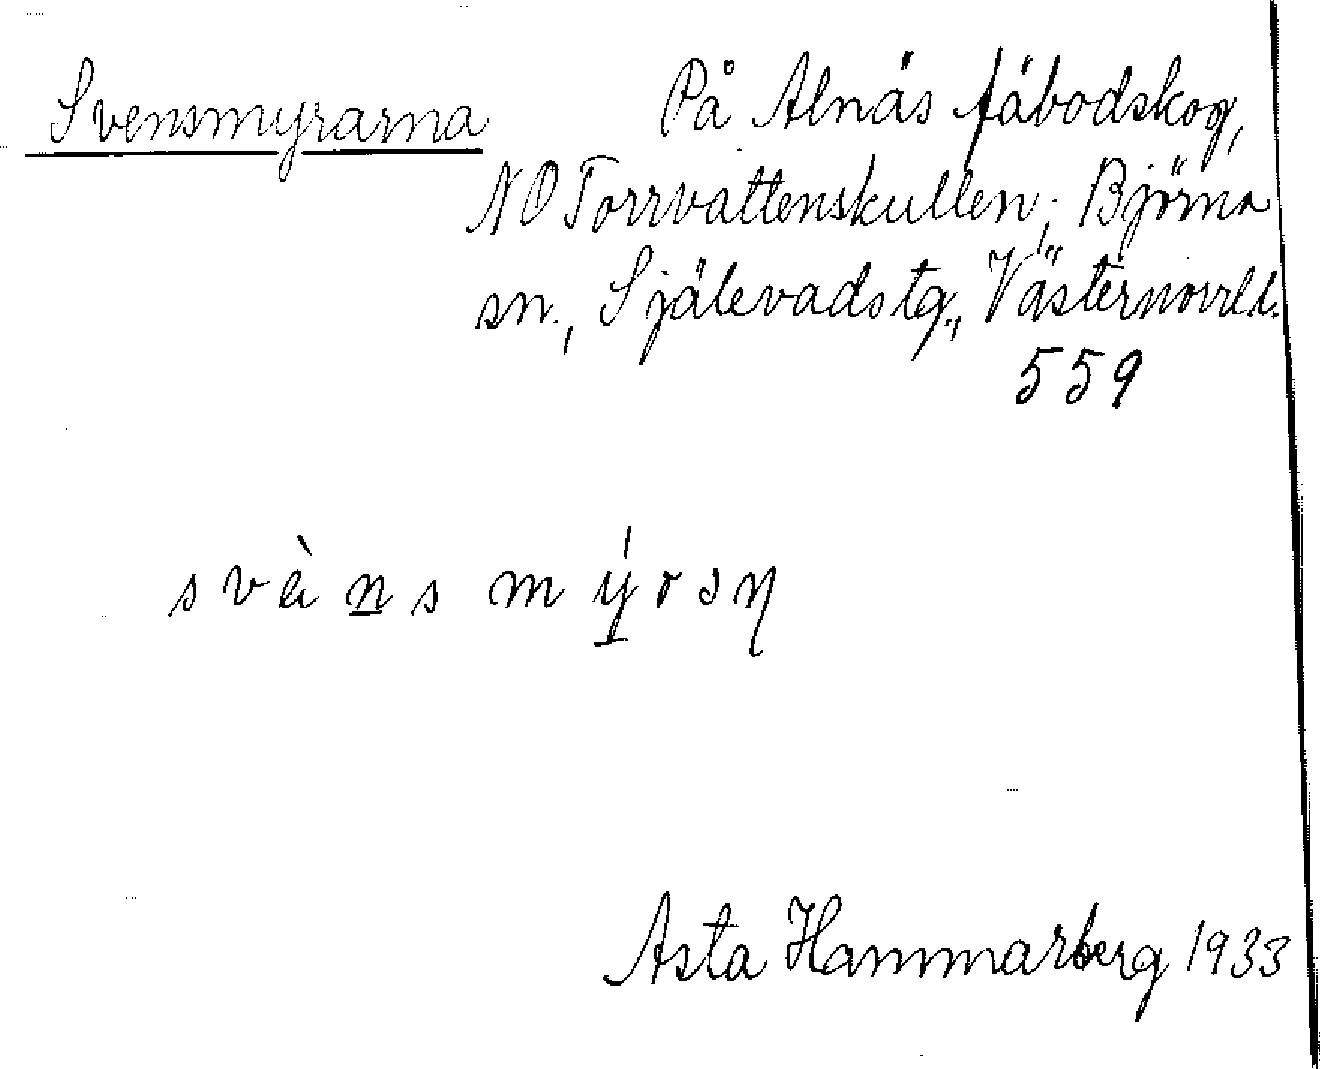 Svensmyrarna På Alnäs fäbodskog,
NO Torrvattenskullen; Björna
sn., Själevads tg., Västernorrl. l.
559
svὲn̲s mýrən
Asta Hammarberg 1933